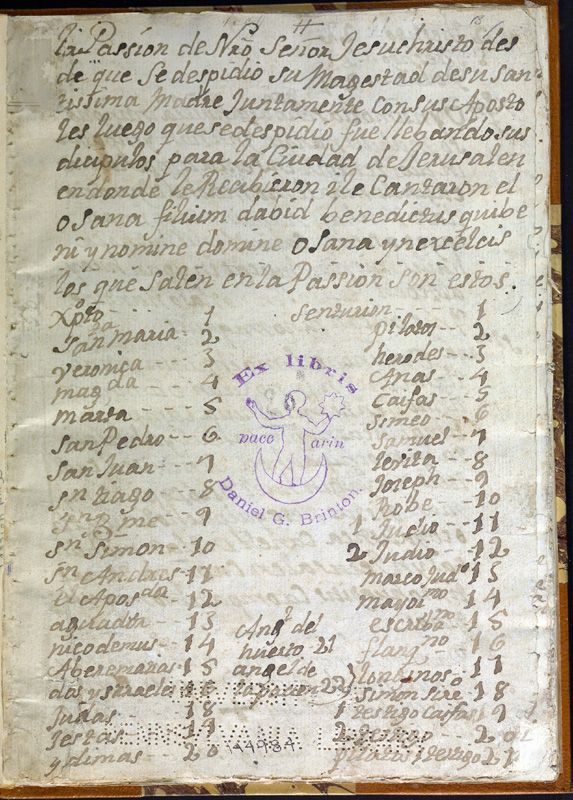 #
la Passion de Nrō Señor Jesuchristo des
de que Se despidio su Magestad desu san
tissima Madre Juntamente Consus Aposto
les luego quesedespidio fue llebandosus
dicipulos para la Ciudad de Jerusalen
endonde le Recibieron i le Cantaron el
osana filium dabid benedictus quibe
ni y nomine domine osana ynexcelcis
los que salen en la Passion son estos.
Xpto 1
Santa Maria 2
veronica 3
magda 4
marta 5
San Pedro 6
San Juan 7
sn tiago 8
9
sn Simon 10
sn Andres 11
el Apos 12
aguada 13
nicodemus 14
Aberemazas 15
das y srraeles
Judas 18
Jestas 19
y dimas 20
Ang.l del
huerto 21
angel de
la pacion 22
senturion 1
pilatos 2
herodes 3
Anas 4
Caifas 5
simeo 6
Samuel 7
levita 8
Joseph 9
Robe 10
1 Judio 11
2 Judio 12
marco Judo 13
mayormo 14
escribano 15
flangno 16
longinos 17
simon sire 18
1 testigo Caifas 19
2 testigo 20
pilatos testigo 21
Ex libris
pace arin
Daniel G. Brinton.
44984